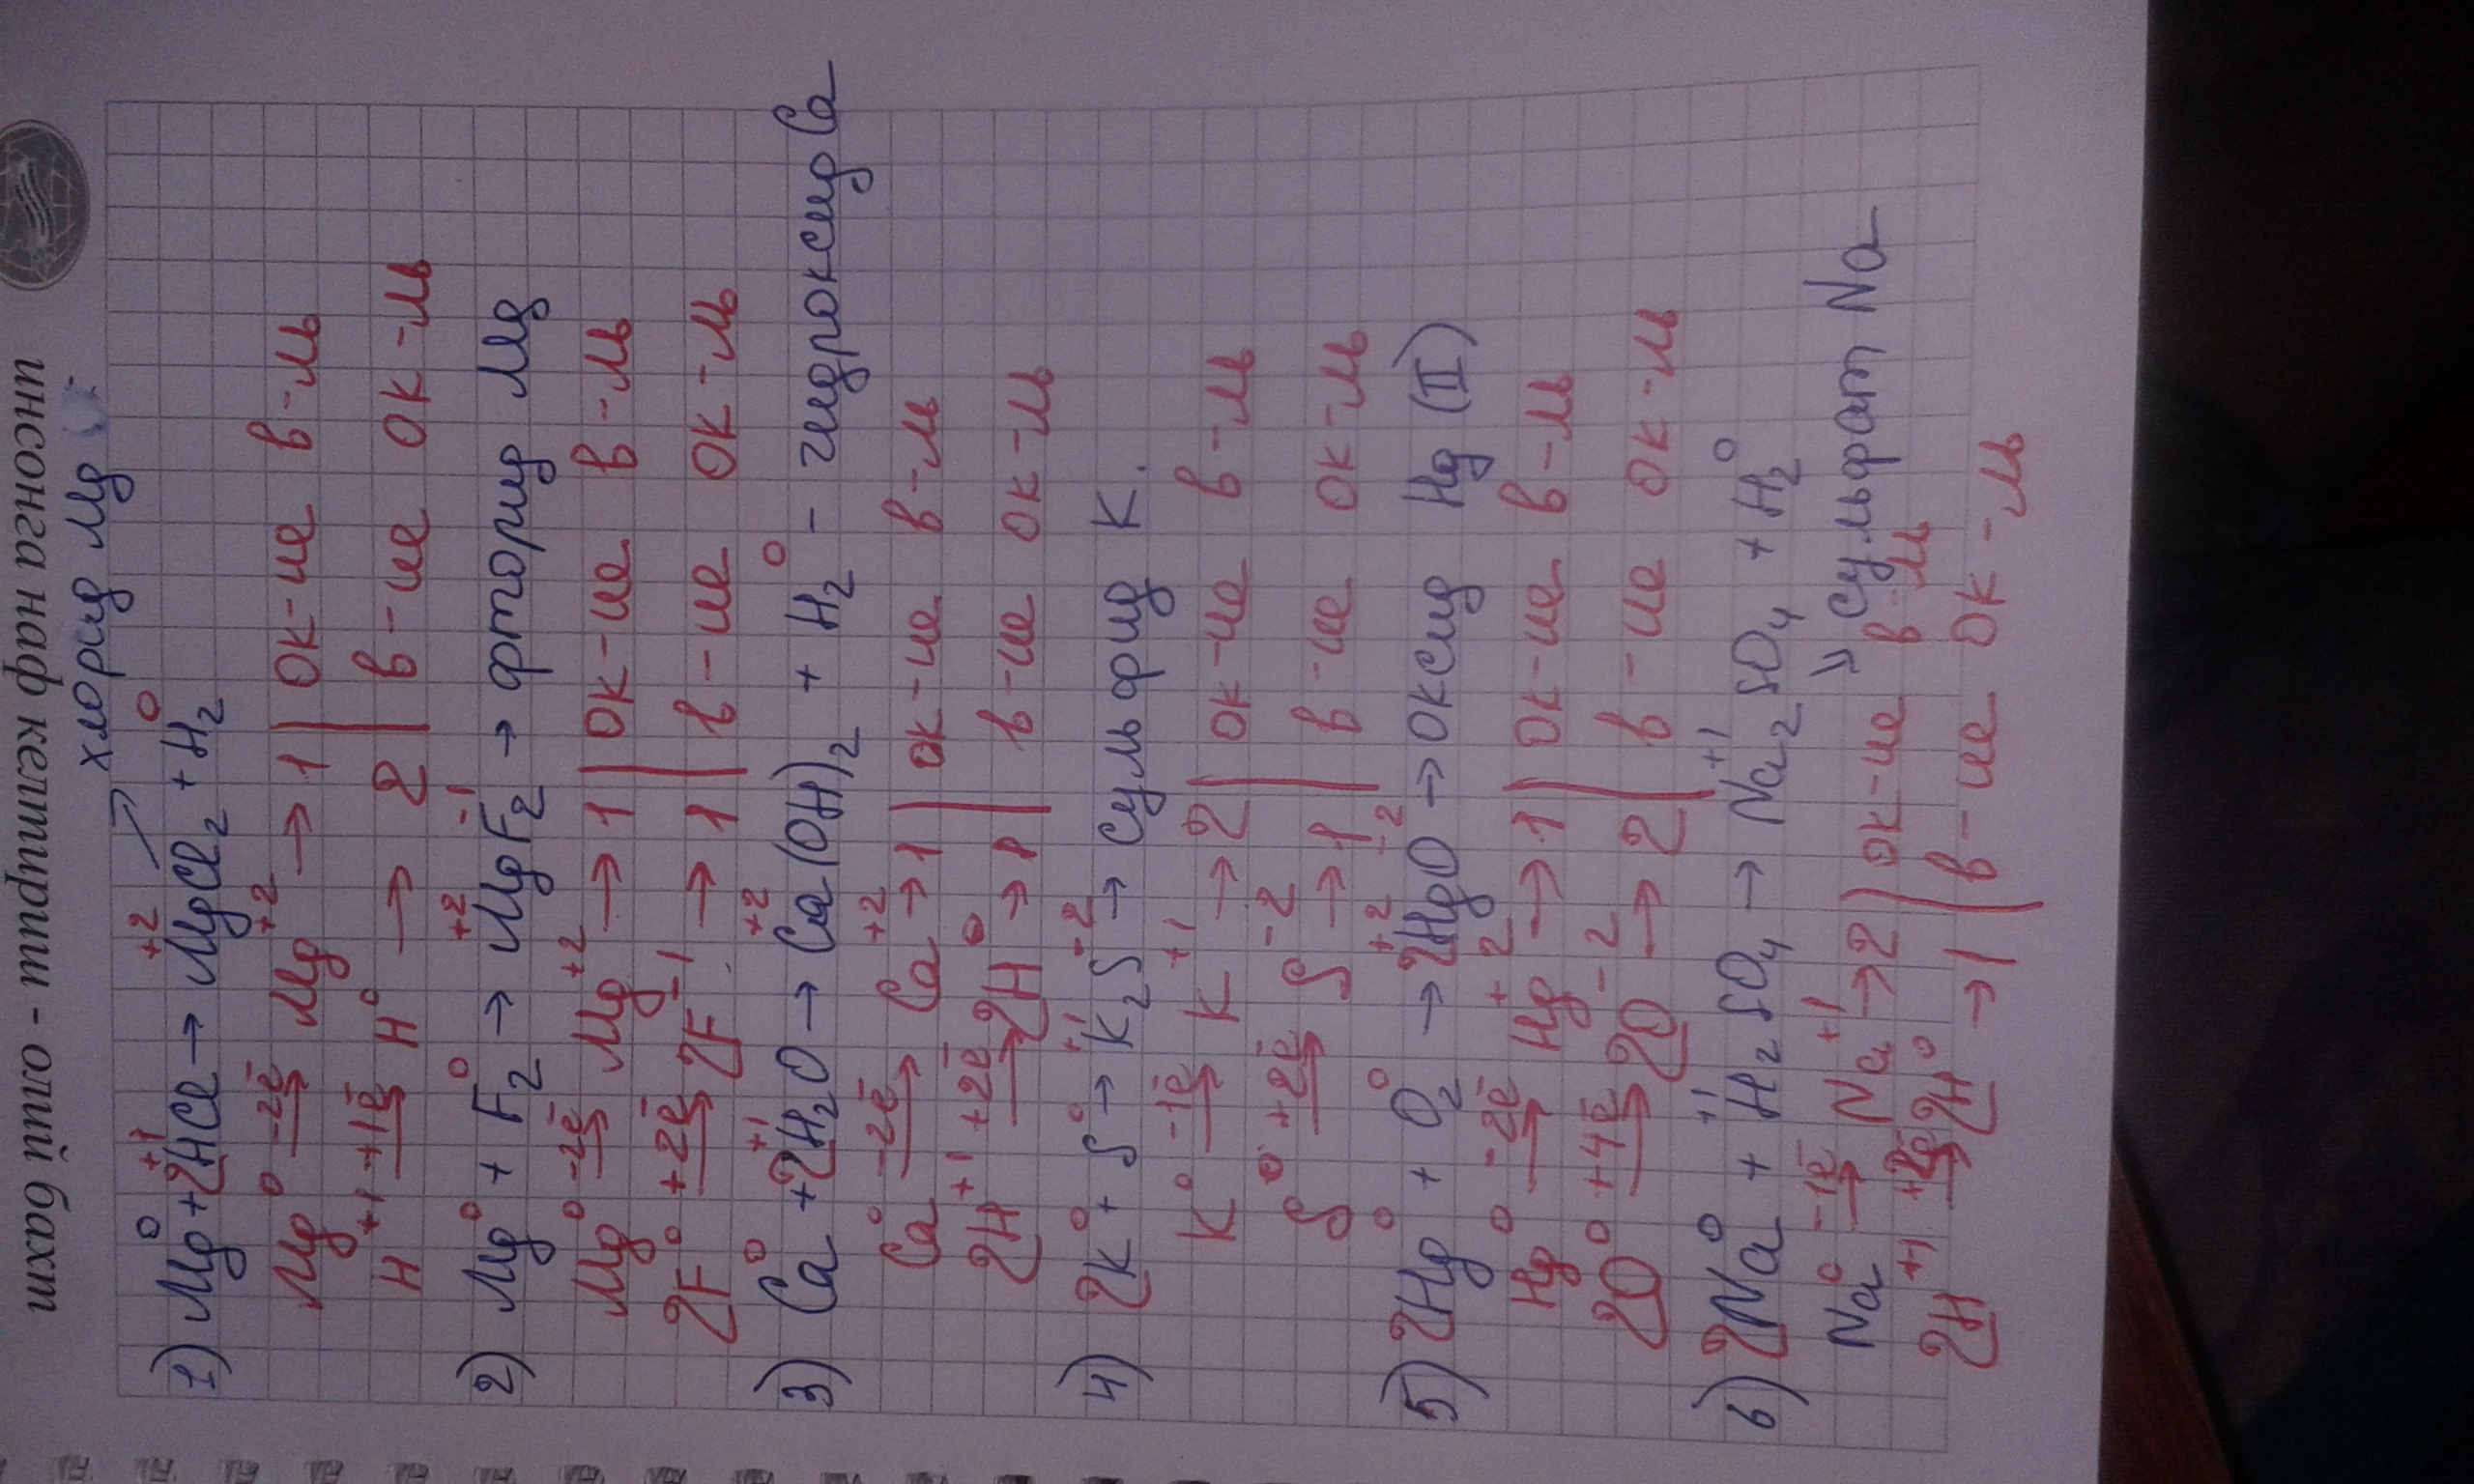 инсонга наф келтириш - олий бахт
хлорид Mg
1) Mg⁰ + 2H⁺¹Cl → Mg⁺²Cl₂ + H₂⁰
Mg⁰ -2ē→ Mg⁺² → 1 | ок-ие в-ль
H⁺¹ +1ē→ H⁰ → 2 | в-ие ок-ль
2) Mg⁰ + F₂⁰ → Mg⁺²F₂⁻¹ → фторид Mg
Mg⁰ -2ē→ Mg⁺² → 1 | ок-ие в-ль
2F⁰ +2ē→ 2F⁻¹ → 1 | в-ие ок-ль
3) Ca⁰ + 2H₂⁺¹O → Ca⁺²(OH)₂ + H₂⁰ - гидроксид Ca
Ca⁰ -2ē→ Ca⁺² → 1 | ок-ие в-ль
2H⁺¹ +2ē→ 2H⁰ → 1 | в-ие ок-ль
4) 2K⁰ + S⁰ → K₂⁺¹S⁻² → сульфид K.
K⁰ -1ē→ K⁺¹ → 2 | ок-ие в-ль
S⁰ +2ē→ S⁻² → 1 | в-ие ок-ль
5) 2Hg⁰ + O₂⁰ → 2Hg⁺²O⁻² → оксид Hg (II)
Hg⁰ -2ē→ Hg⁺² → 1 | ок-ие в-ль
2O⁰ +4ē→ 2O⁻² → 2 | в-ие ок-ль
6) 2Na⁰ + H₂⁺¹SO₄ → Na₂⁺¹SO₄ + H₂⁰
сульфат Na
Na⁰ -1ē→ Na⁺¹ → 2 | ок-ие в-ль
2H⁺¹ +2ē→ 2H⁰ → 1 | в-ие ок-ль